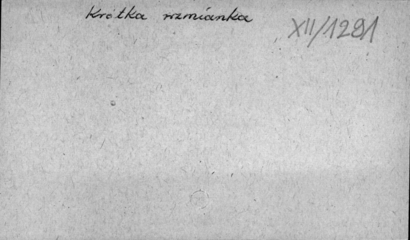 Krótka wzmianka
XII/1281